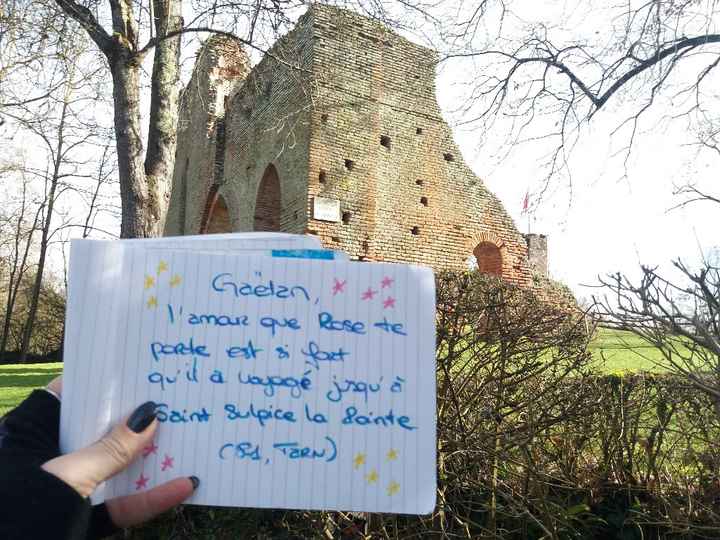 Gaëtan,
l'amour que Rose te
porte est si fort
qu'il a voyagé jusqu'à
Saint Sulpice la Pointe
(81, TARN)